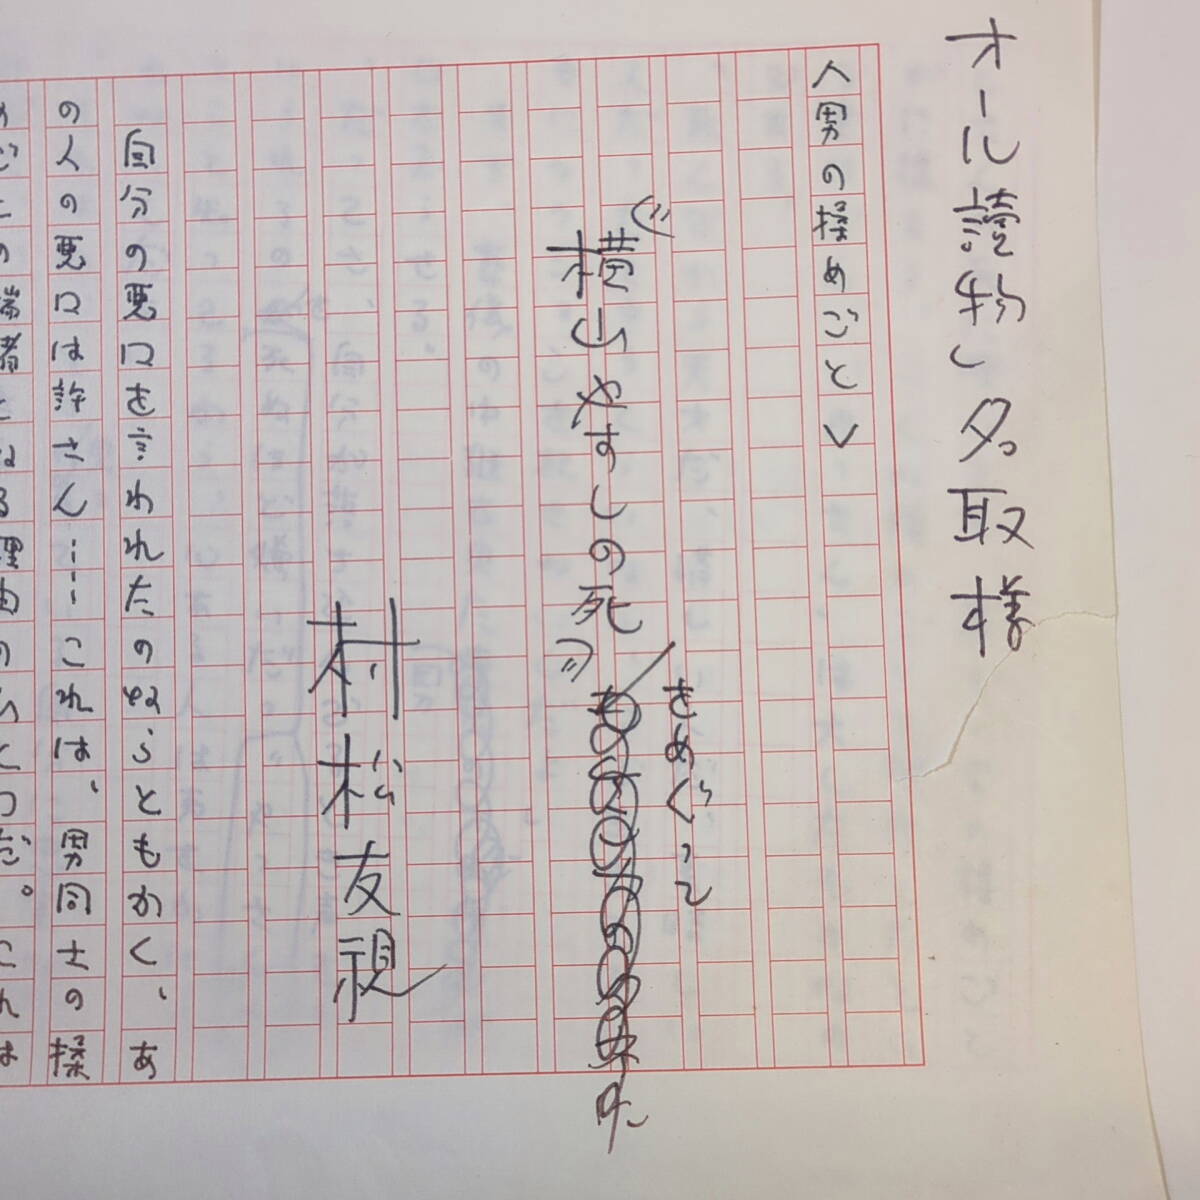 オール讀物」名取様
〈男の揉めごと〉
〝横山やすしの死〟
をめぐって
村松友視
自分の悪口を言われたのならともかく、あ
の人の悪口は許さん……これは、男同士の揉
めごとの端緒となる理由のひとつだ。これは